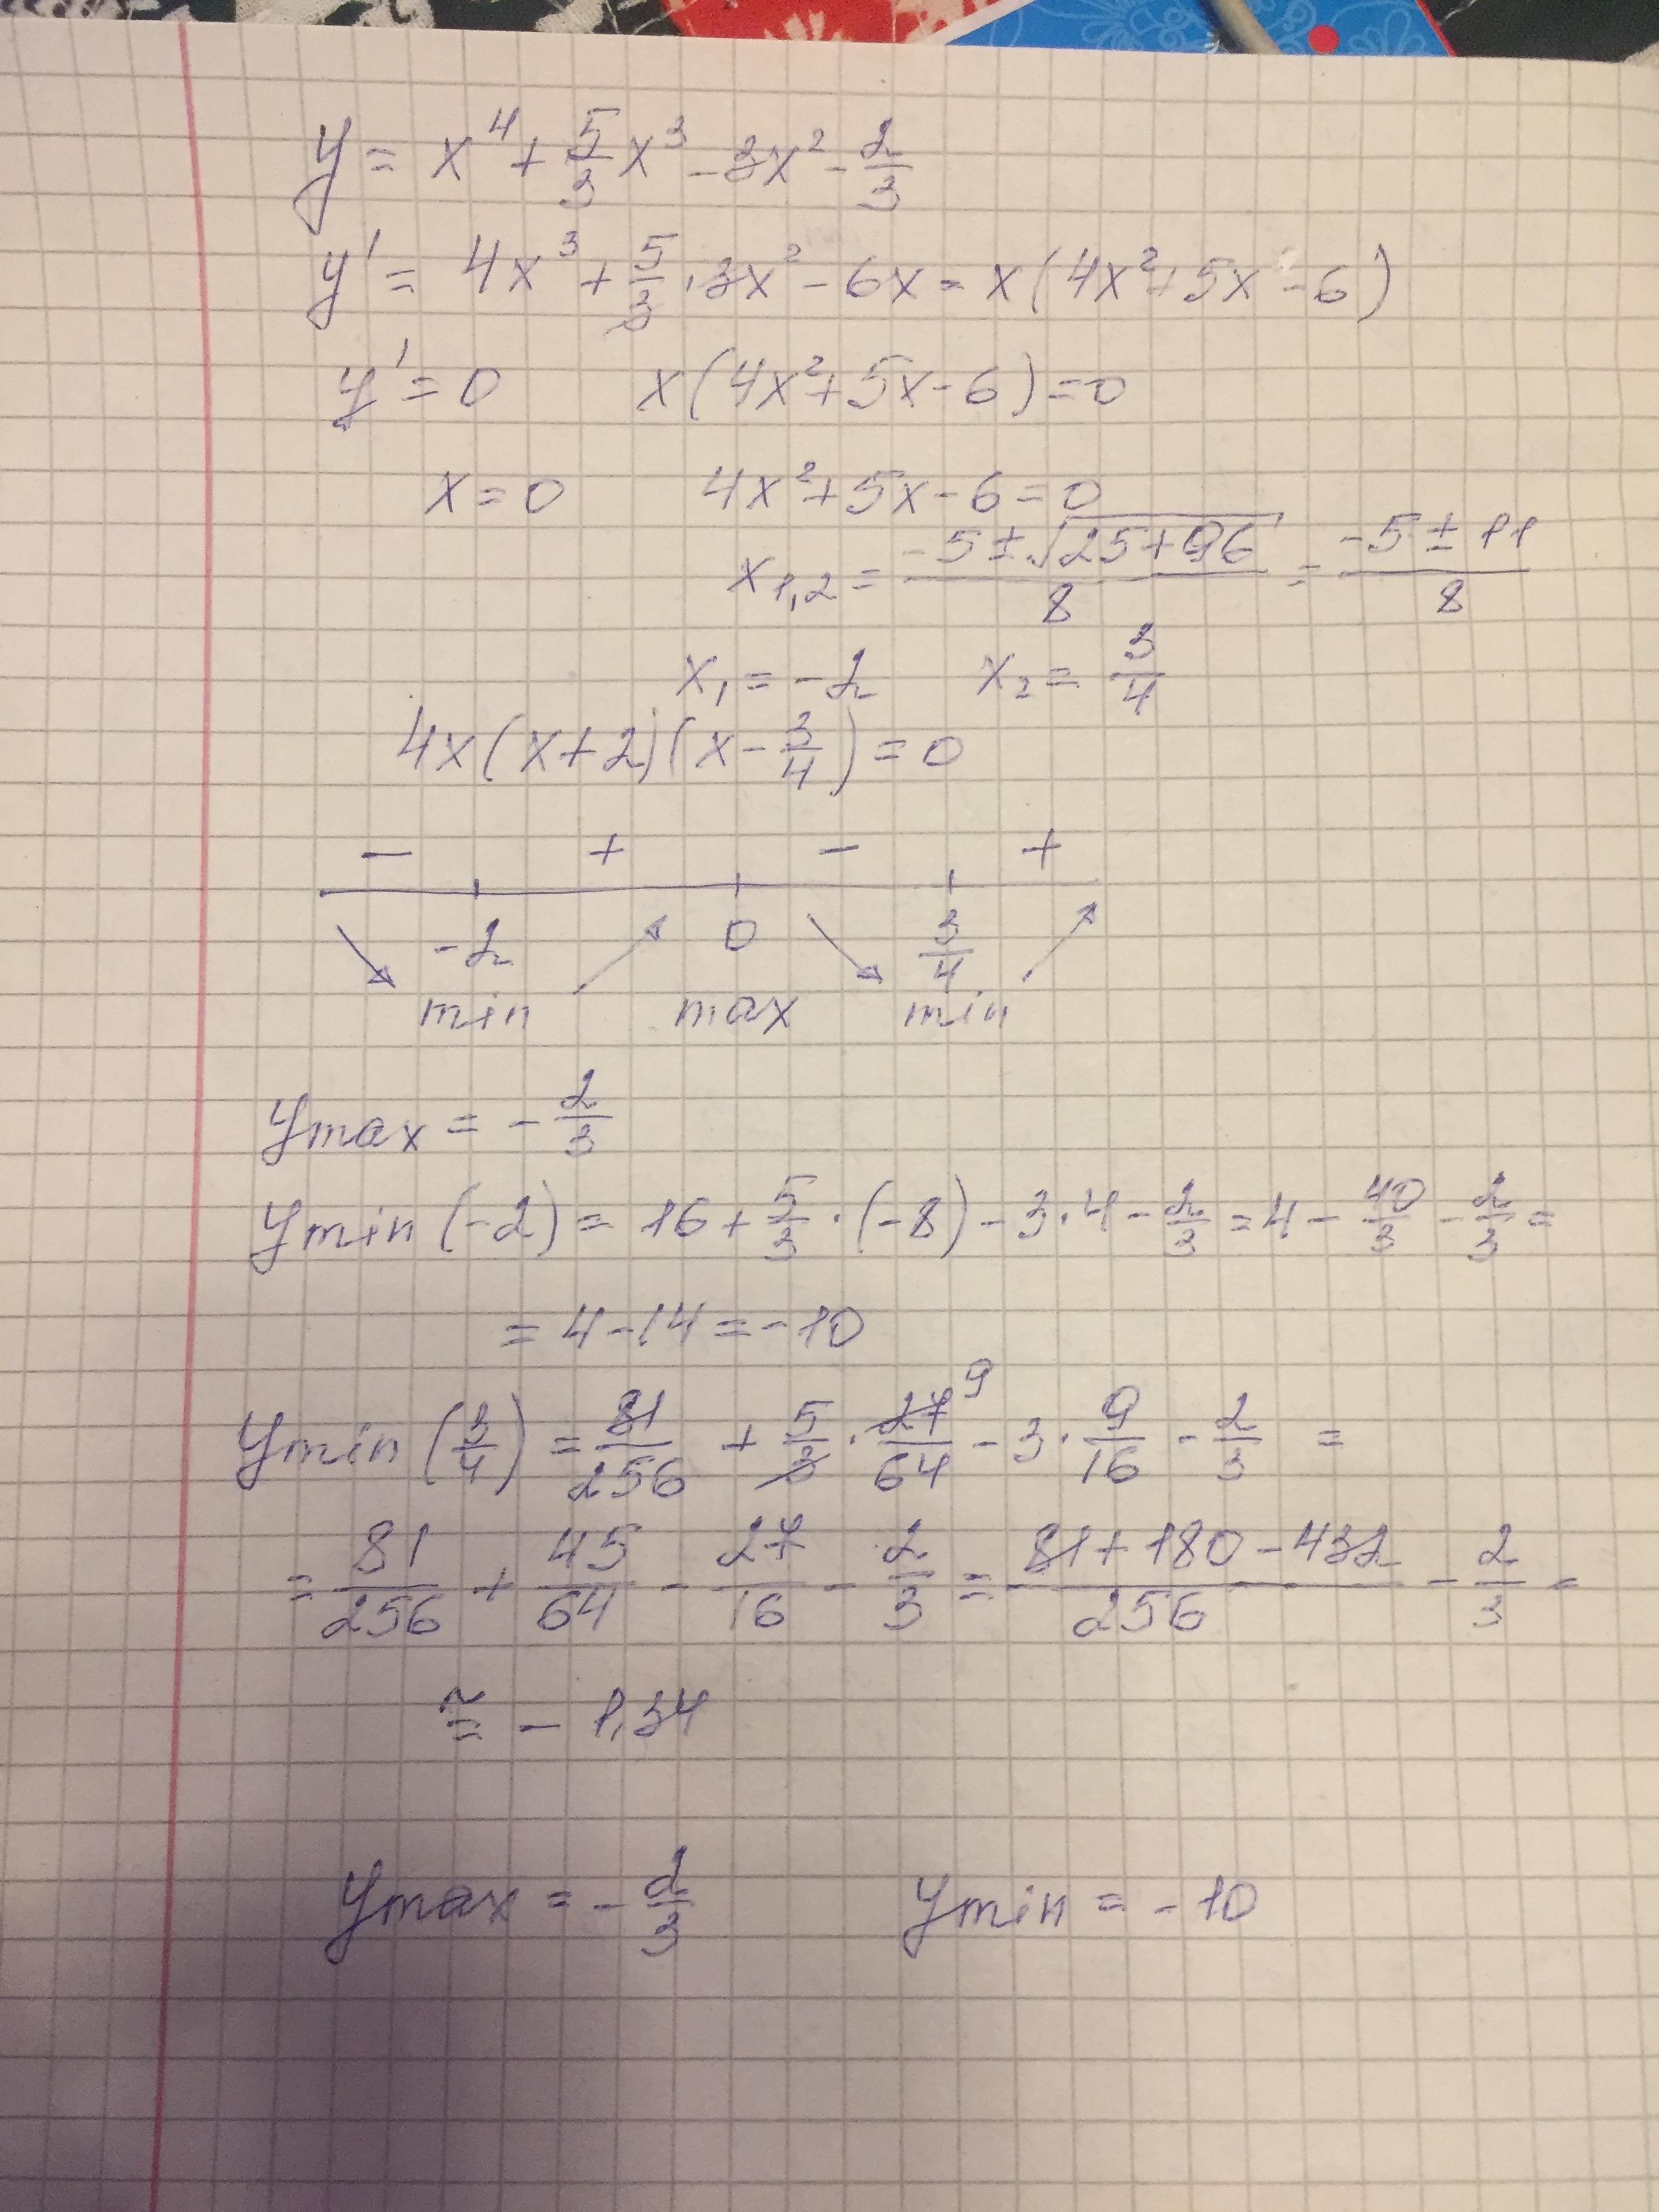 y = x⁴ + 5/3 x³ - 3x² - 2/3
y' = 4x³ + 5/3 · 3x² - 6x = x(4x² + 5x - 6)
y' = 0 x(4x² + 5x - 6) = 0
x = 0 4x² + 5x - 6 = 0
x₁,₂ = (-5 ± √(25+96))/8 = (-5 ± 11)/8
x₁ = -2 x₂ = 3/4
4x(x+2)(x - 3/4) = 0
- + - +
-2 0 3/4
min max min
ymax = -2/3
ymin(-2) = 16 + 5/3 · (-8) - 3·4 - 2/3 = 4 - 40/3 - 2/3 =
= 4 - 14 = -10
ymin(3/4) = 81/256 + 5/3 · 27/64 9 - 3 · 9/16 - 2/3 =
= 81/256 + 45/64 - 27/16 - 2/3 = (81+180-432)/256 - 2/3 =
≅ -1,34
ymax = -2/3 ymin = -10